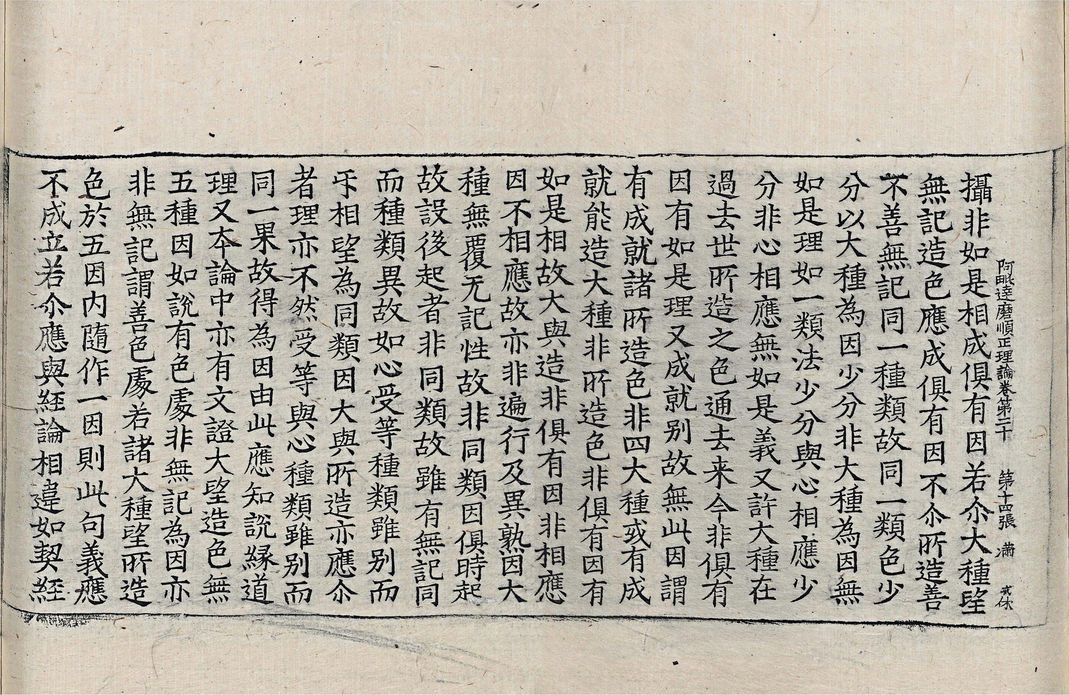 攝非如是相成俱有因若尒大種望
無記造色應成俱有因不尒所造善
不善無記同一種類故同一類色少
分以大種為因少分非大種為因無
如是理如一類法少分與心相應少
分非心相應無如是義又許大種在
過去世所造之色通去来今非俱有
因有如是理又成就别故無此因謂
有成就諸所造色非四大種或有成
就能造大種非所造色非俱有因有
如是相故大與造非俱有因非相應
因不相應故亦非遍行及異熟因大
種無覆无記性故非同類因俱時起
故設後起者非同類故雖有無記同
而種類異故如心受等種類雖别而
㸦相望為同類因大與所造亦應尒
者理亦不然受等與心種類雖别而
同一果故得為因由此應知說緣道
理又本論中亦有文證大望造色無
五種因如說有色處非無記為因亦
非無記謂善色處若諸大種望所造
色於五因内隨作一因則此句義應
不成立若尒應與經論相違如契經
阿毗達磨順正理論卷第二十 第十四張 滿 戒休